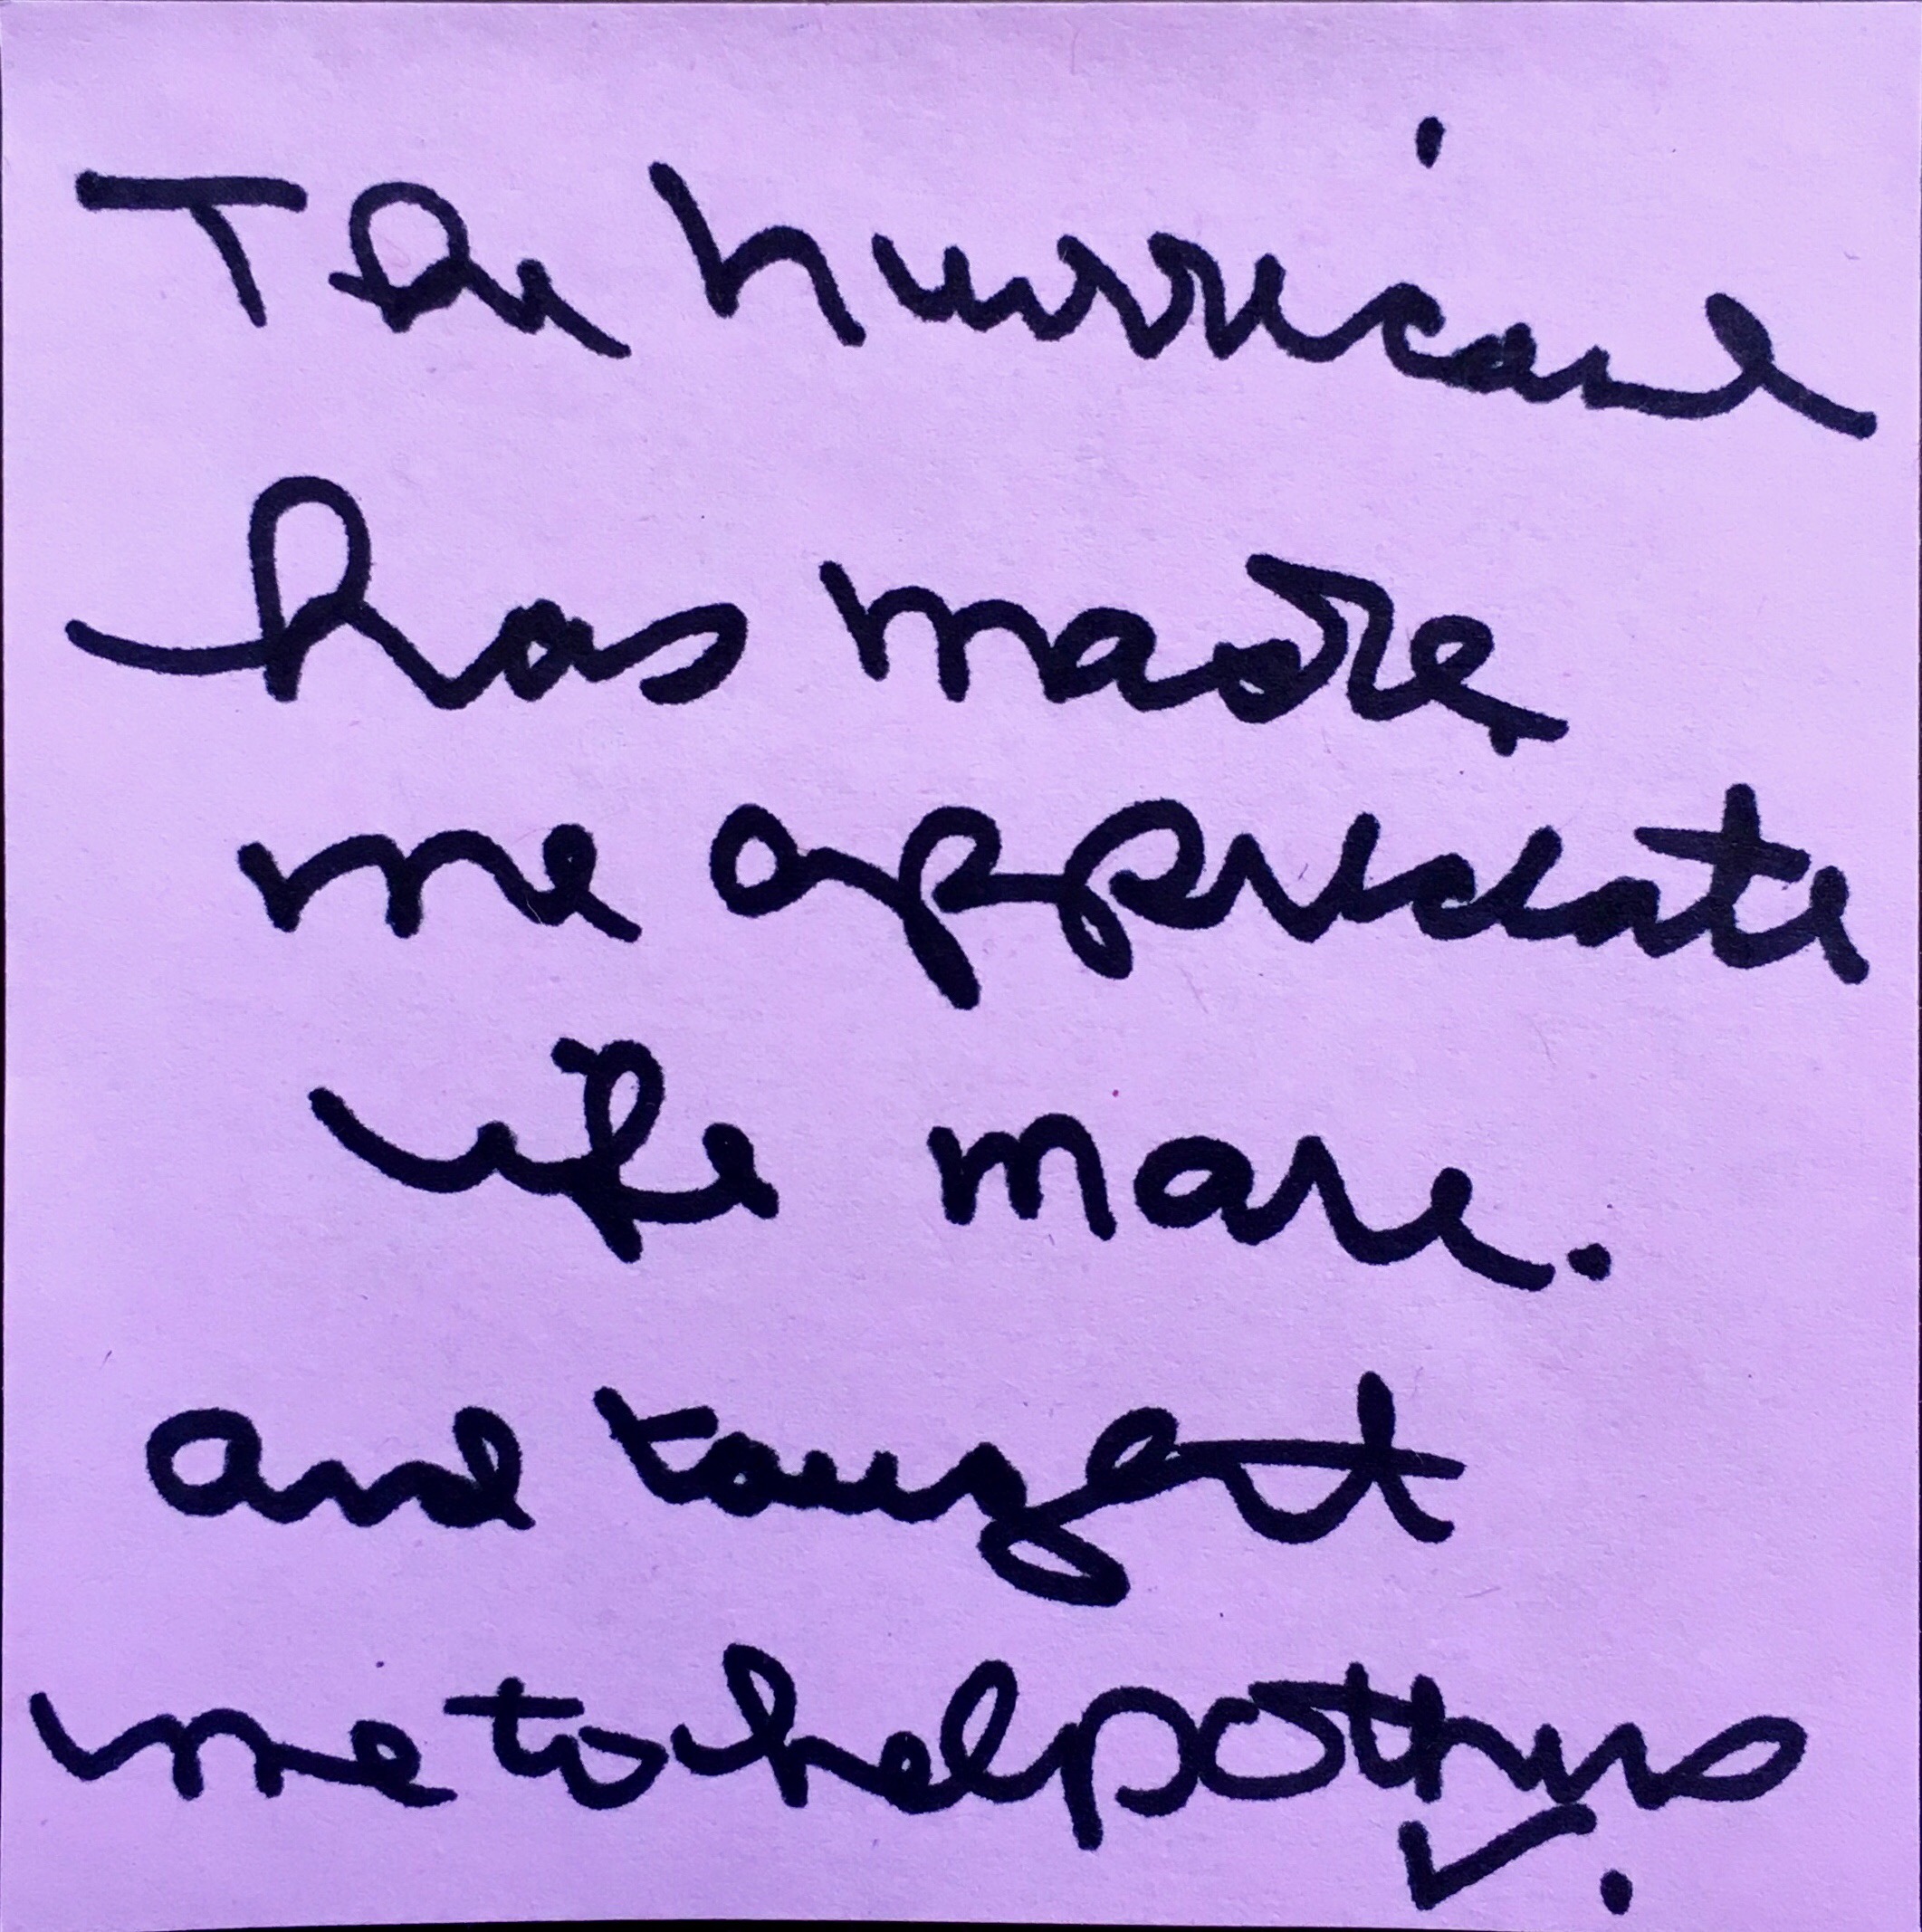 The hurricane
has made
me appreciate
life more.
and taught
me to help others
.